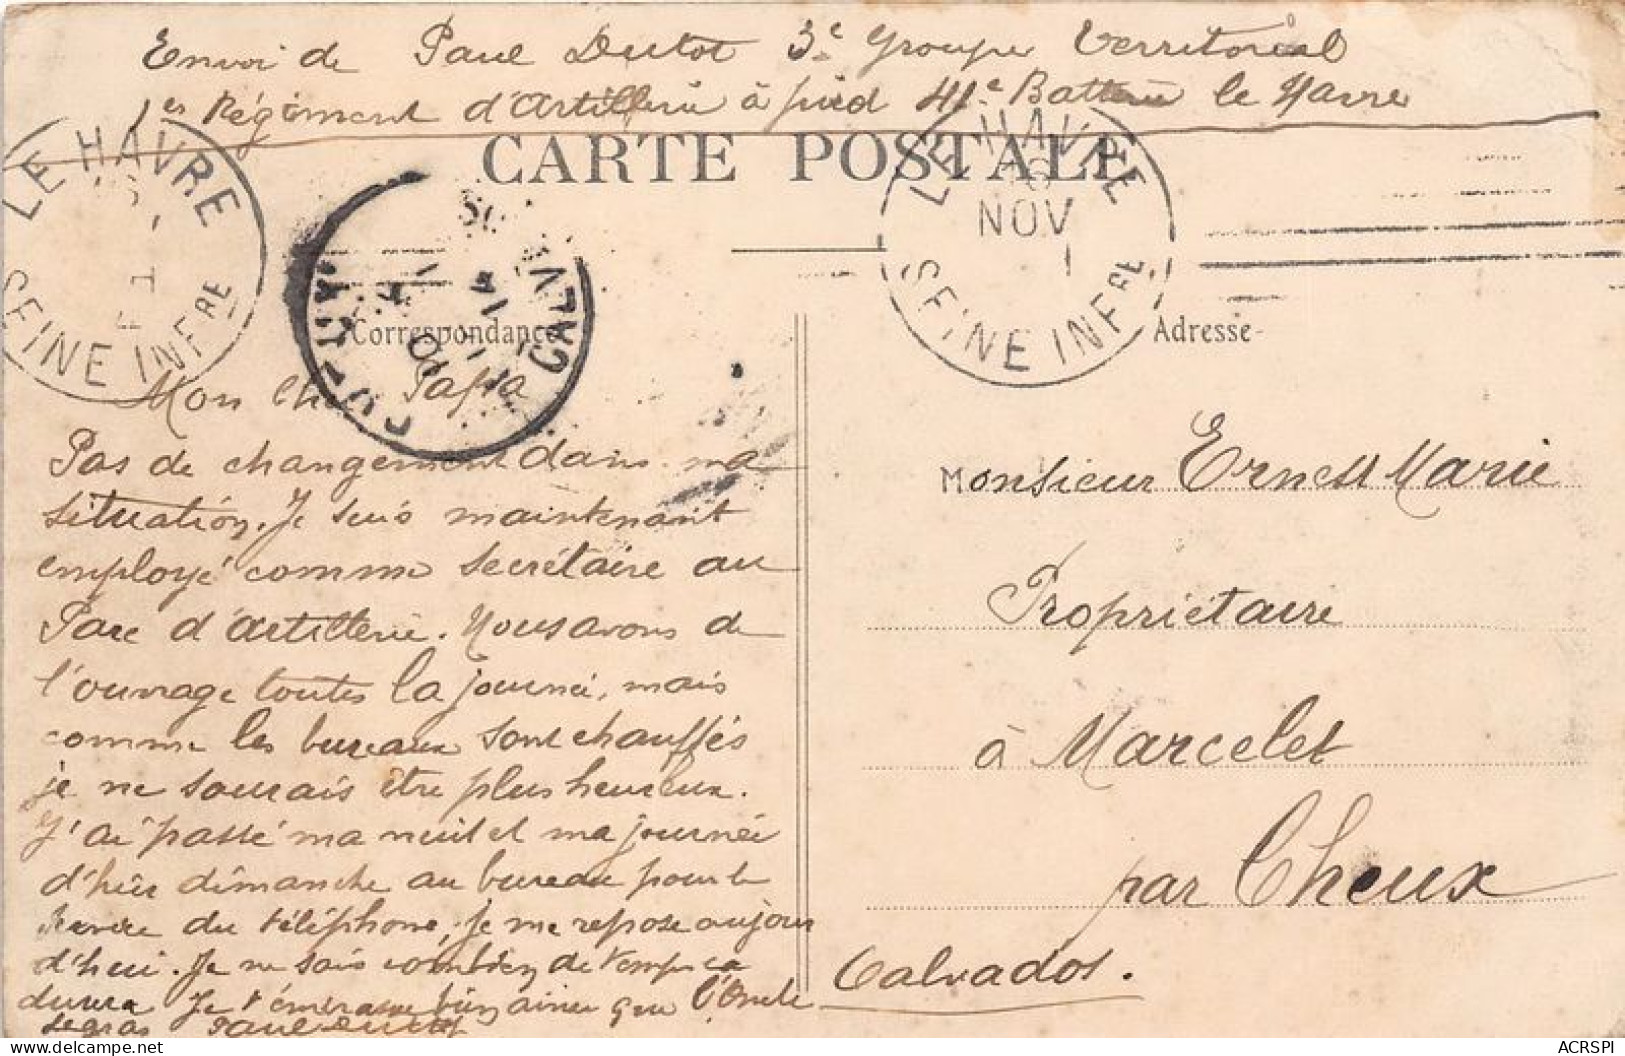 Envoi de Paul Dutot 3e Groupe Territorial
1er Régiment d'Artillerie à pied 41e Batterie le Havre
CARTE POSTALE
LE HAVRE
SEINE INFRE
LE HAVRE
NOV
SEINE INFRE
Correspondance
Adresse
Mon Cher Papa
Pas de changement dans ma
situation. Je suis maintenant
employé comme secrétaire au
Parc d'artillerie. Nous avons de
l'ouvrage toutes la journée, mais
comme les bureaux sont chauffés
je ne saurais être plus heureux.
J'ai passé ma nuit et ma journée
d'hier dimanche au bureau pour le
service du téléphone, je me repose aujour
d'hui. Je ne sais combien de temps ca
durera Je t'embrasse bien ainsi que l'Oncle
Paul Dutot
Monsieur Ernest Marie
Propriétaire
à Marcelet
par Cheux
Calvados.
ACRSPI